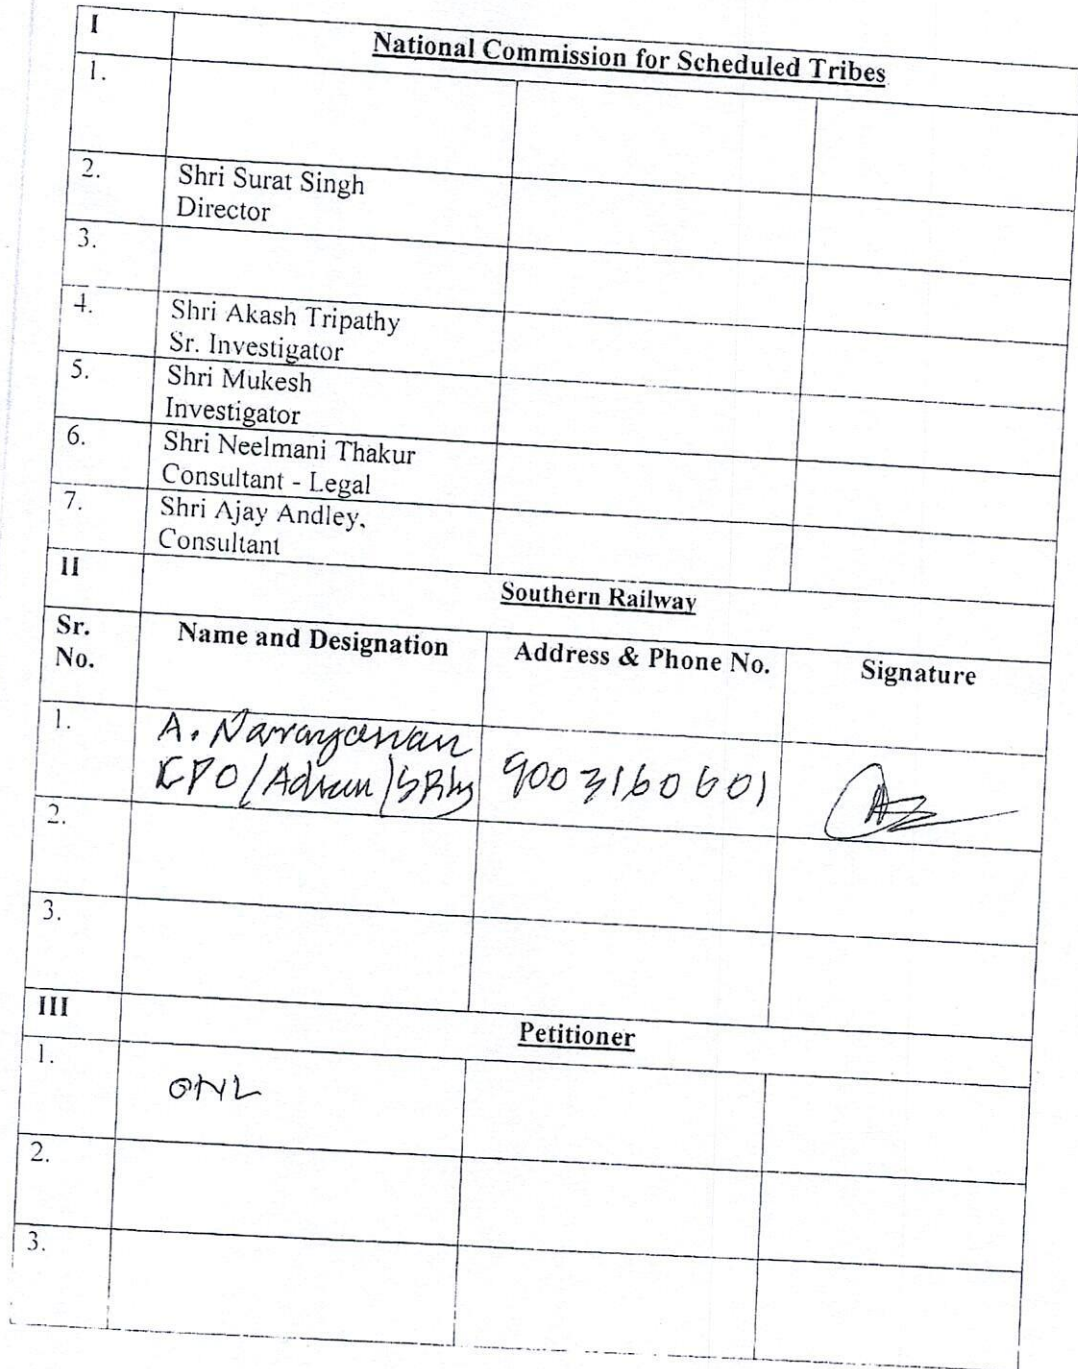 I
National Commission for Scheduled Tribes
1.
2.
Shri Surat Singh
Director
3.
4.
Shri Akash Tripathy
Sr. Investigator
5.
Shri Mukesh
Investigator
6.
Shri Neelmani Thakur
Consultant - Legal
7.
Shri Ajay Andley,
Consultant
II
Southern Railway
Sr. No.
Name and Designation
Address & Phone No.
Signature
1.
A. Narayanan
CPO/Admn/SRly
9003160601
2.
3.
III
Petitioner
1.
2.
3.